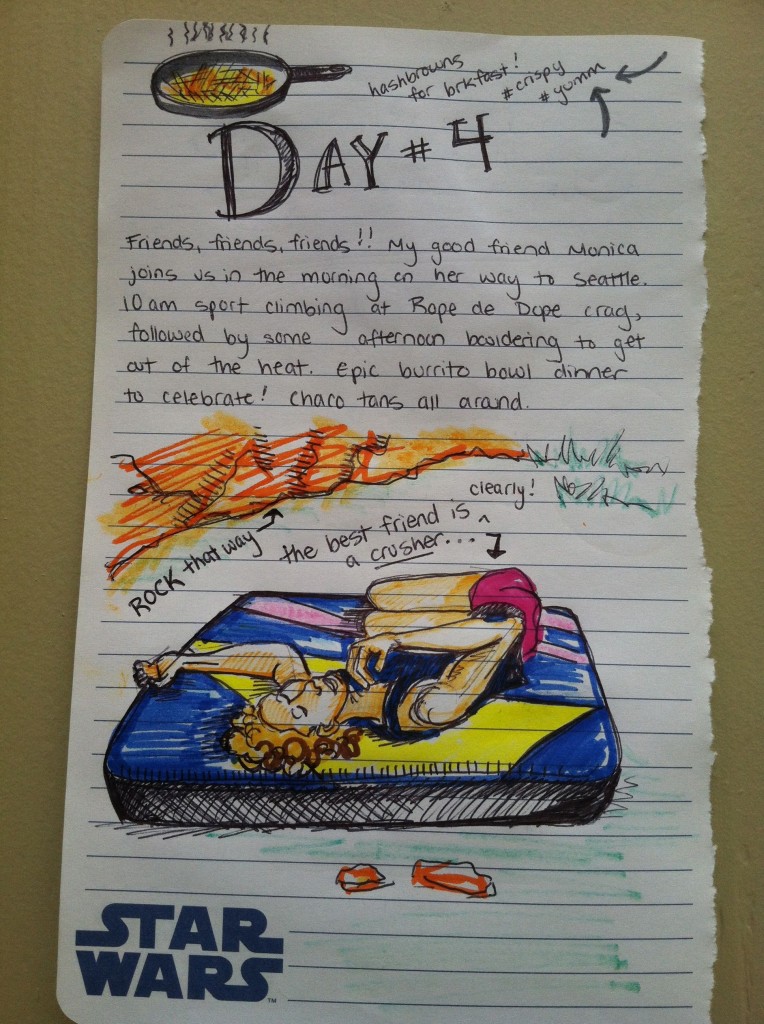 hashbrowns
for brkfast!
#crispy
#yumm
DAY #4
Friends, friends, friends!! My good friend Monica
joins us in the morning on her way to Seattle.
10 am sport climbing at Rope de Dope crag,
followed by some afternoon bouldering to get
out of the heat. Epic burrito bowl dinner
to celebrate! Chaco tans all around.
clearly!
ROCK that way
the best friend is ^
a crusher...
STAR
WARS
TM